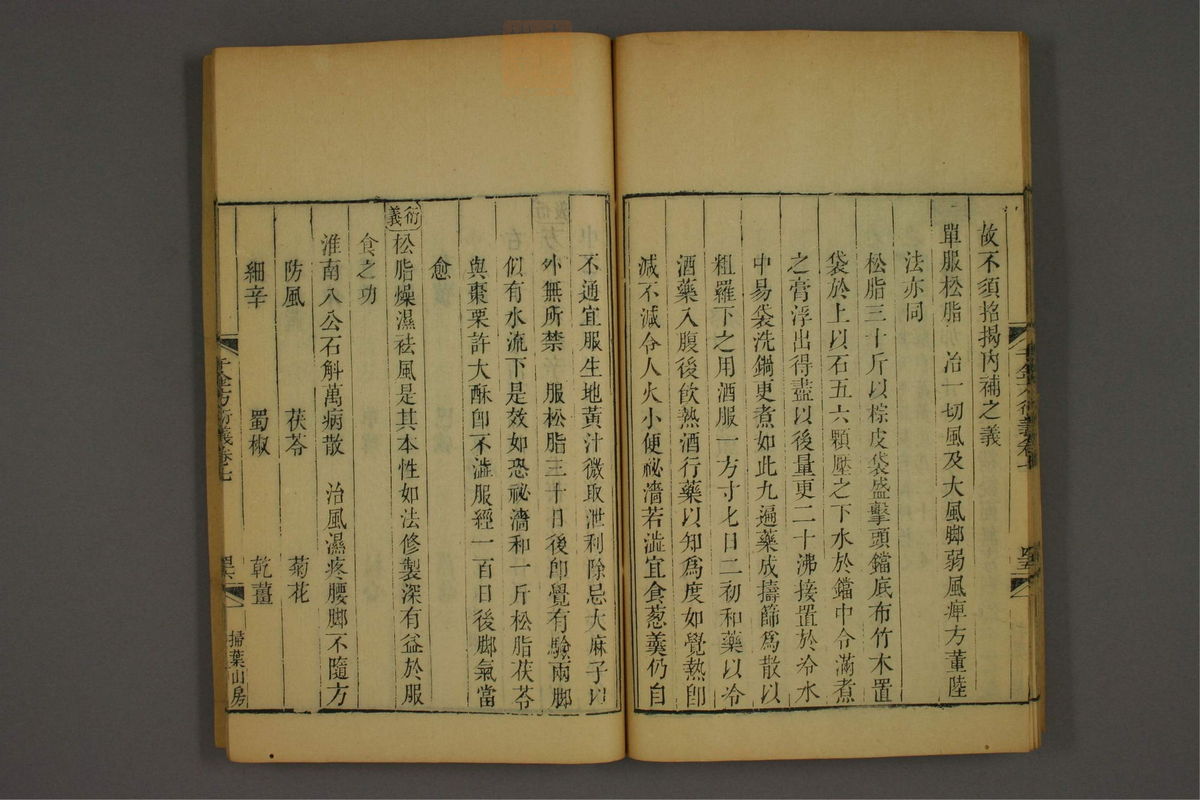 故不須掐揭內補之義
單服松脂亦治一切風及大風脚弱風痺方董陸
法亦同
松脂三十斤以棕皮袋盛擊頭鐺底布竹木置
袋於上以石五六顆壓之下水於鐺中令滿煮
之膏浮出得盡以後量更二十沸接置於冷水
中易袋洗鍋更煮如此九遍藥成擣篩為散以
粗羅下之用酒服一方寸匕日二初和藥以冷
酒藥入腹後飲熱酒行藥以知為度如覺熱即
減不減令人火小便祕濇若澁宜食葱羹仍自
千金方衍義卷七
不通宜服生地黃汁微取泄利除忌大麻子以
外無所禁 服松脂三十日後卽覺有驗兩脚
似有水流下是效如恐祕濇和一斤松脂茯苓
與棗栗許大酥卽不澁服經一百日後脚氣當
愈
衍義 松脂燥濕祛風是其本性如法修製深有益於服
食之功
淮南八公石斛萬病散 治風濕疼腰脚不隨方
防風 茯苓 菊花
細辛 蜀椒 乾薑
千金方衍義卷七
掃葉山房